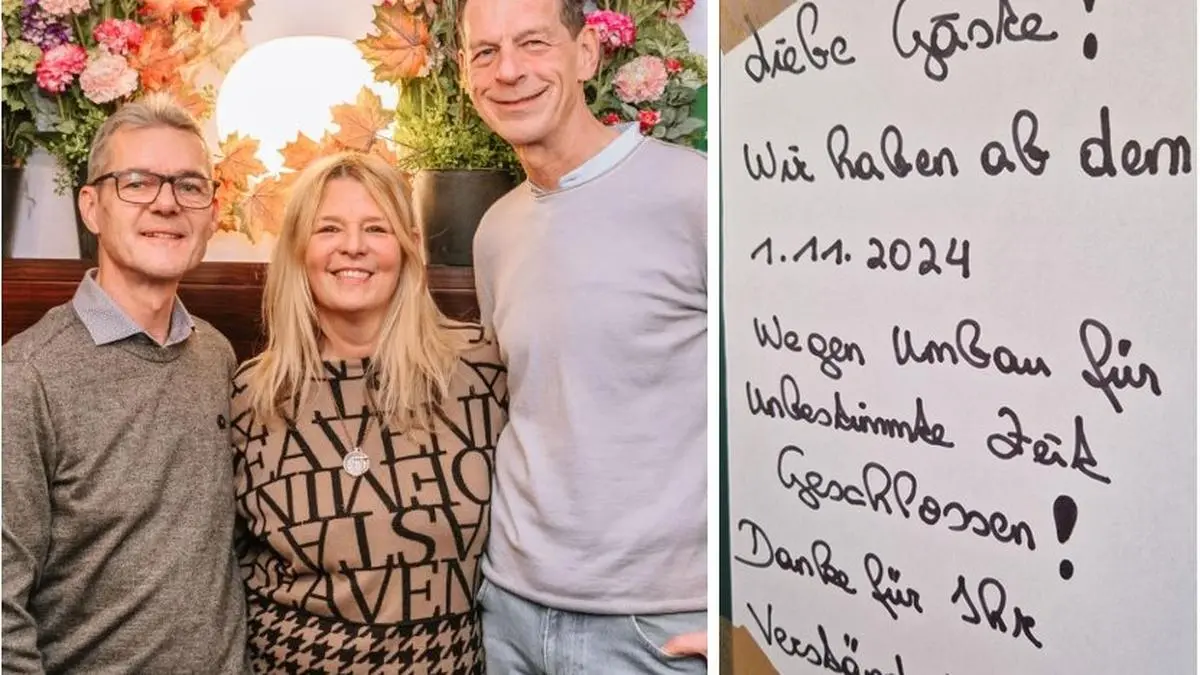 Liebe Gäste!
Wir haben ab dem
1.11.2024
Wegen Umbau für
unbestimmte Zeit
Geschlossen!
Danke für Ihr